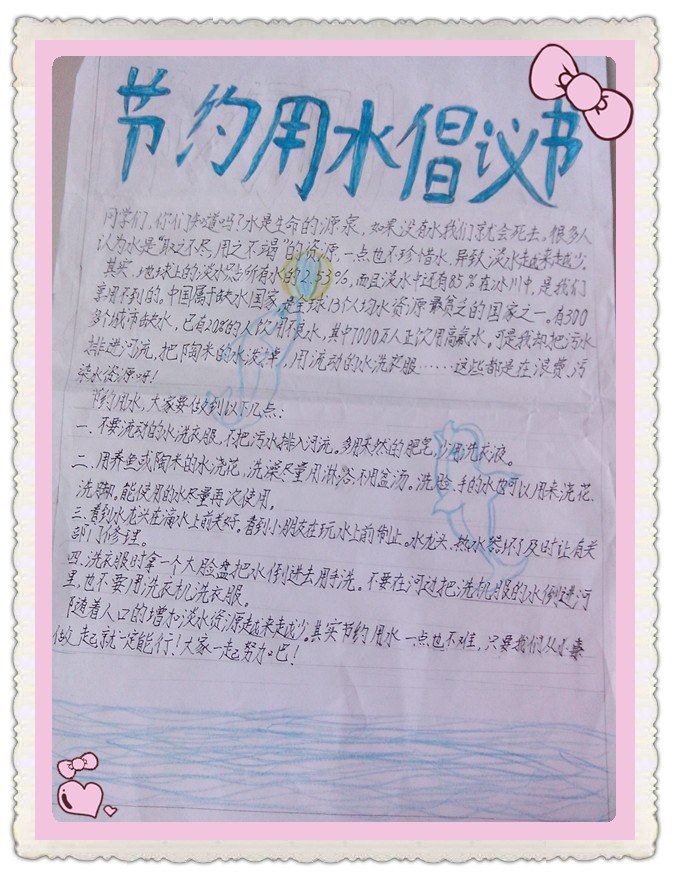 节约用水倡议书
同学们,你们知道吗?水是生命的源泉,如果没有水我们就会死去。很多人
认为水是“取之不尽,用之不竭”的资源,一点也不珍惜水,导致淡水越来越少。
其实,地球上的淡水只占所有水的2.53%,而且淡水中还有85%在冰川中,是我们
享用不到的。中国属于缺水国家,是全球13个人均水资源最贫乏的国家之一。有300
多个城市缺水,已有20%的人饮用不良水,其中7000万人正饮用高氟水。可是我却把污水
排进河流,把陶米的水泼掉,用流动的水洗衣服……这些都是在浪费、污
染水资源呀!
节约用水,大家要做到以下几点:
一、不要流动的水洗衣服,不把污水排入河流。多用天然的肥皂,少用洗衣液。
二、用养鱼或陶米的水浇花,洗澡尽量用淋浴,不用盆汤。洗脸、手的水也可以用来浇花、
洗脚。能使用的水尽量再次使用。
三、看到水龙头在滴水上前关好。看到小朋友在玩水上前制止。水龙头、热水器坏了及时让有关
部门修理。
四、洗衣服时拿一个大脸盘把水倒进去用手洗。不要在河边把洗机服的水倒进河
里,也不要用洗衣机洗衣服。
随着人口的增加淡水资源越来越少。其实节约用水一点也不难,只要我们从小事
做起就一定能行!大家一起努力吧!